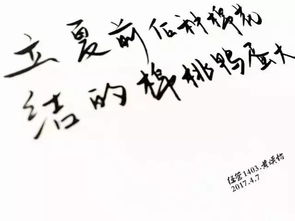 立夏前后种棉花
结的棉桃鸭蛋大
经管1403.黄
2017.4.7